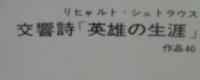 リヒャルト・シュトラウス
交響詩「英雄の生涯」
作品40